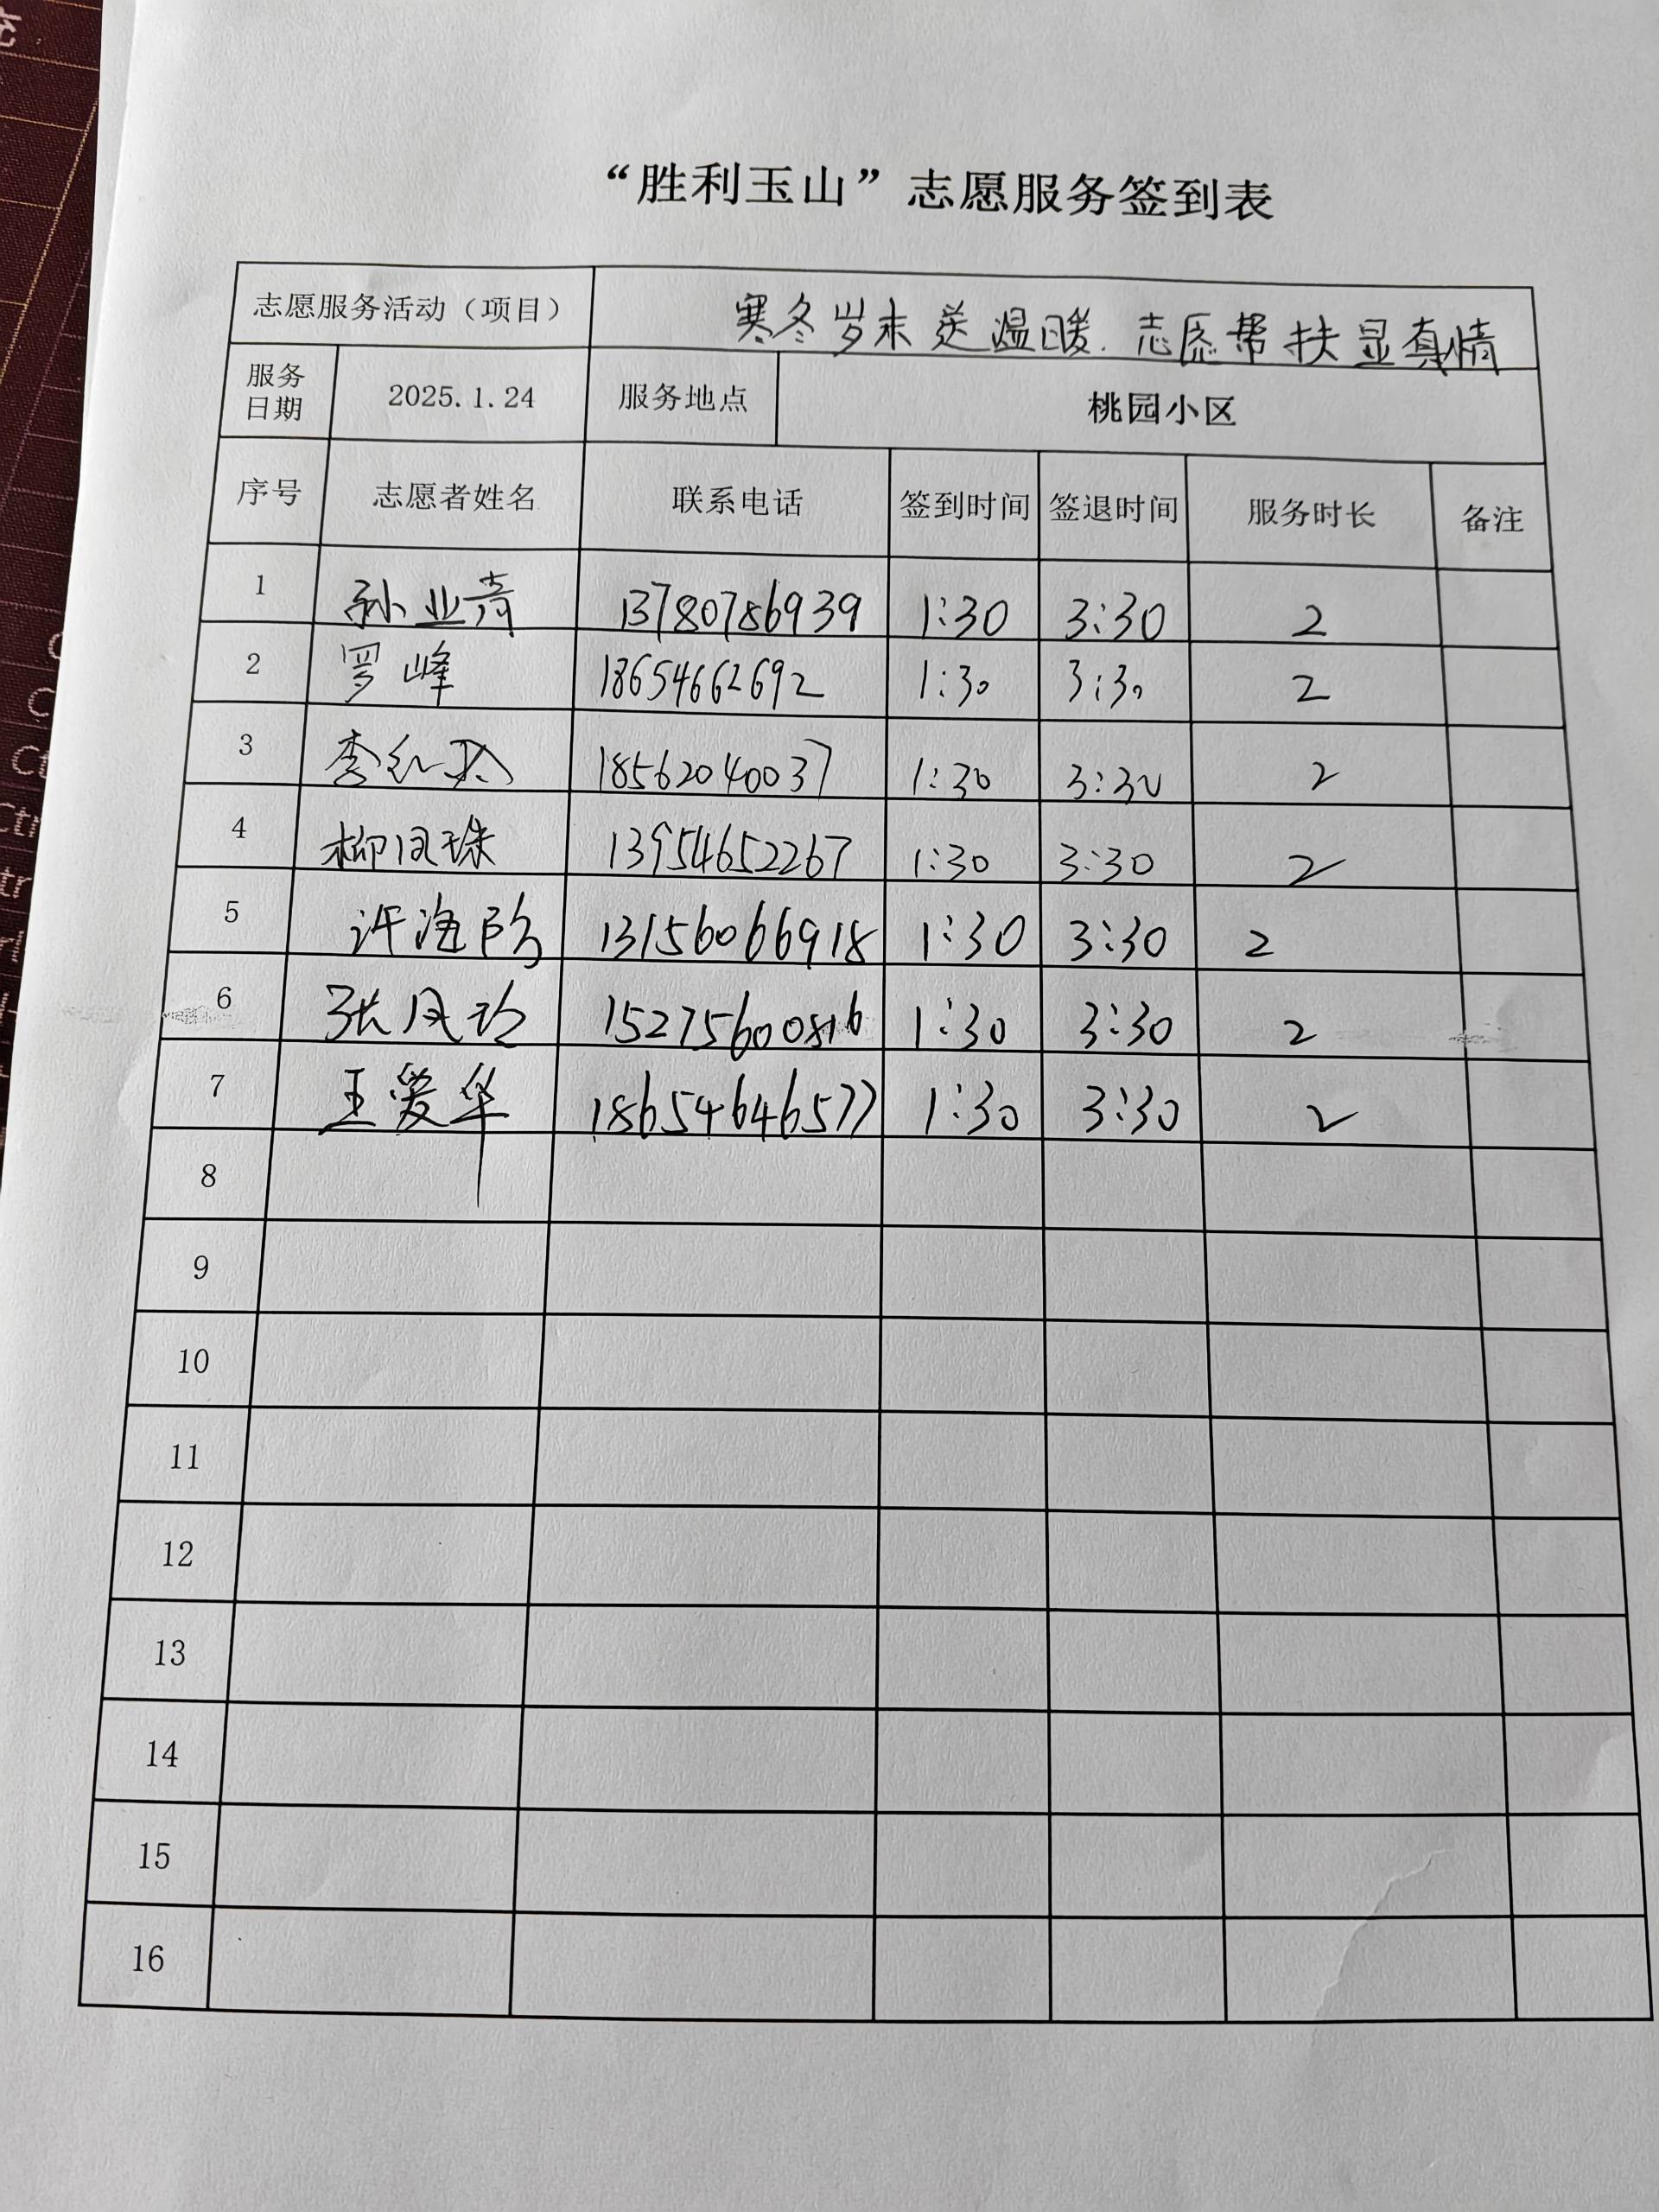 “胜利玉山”志愿服务签到表
志愿服务活动（项目） 寒冬岁末送温暖.志愿帮扶显真情
服务日期 2025.1.24 服务地点 桃园小区
序号 志愿者姓名 联系电话 签到时间 签退时间 服务时长 备注
1 孙业青 13780786939 1:30 3:30 2
2 罗峰 18654662692 1:30 3:30 2
3 李红 18562040037 1:30 3:30 2
4 柳凤珠 13954652267 1:30 3:30 2
5 许海 13156066918 1:30 3:30 2
6 张凤珍 15275600816 1:30 3:30 2
7 王爱华 18654646577 1:30 3:30 2
8
9
10
11
12
13
14
15
16